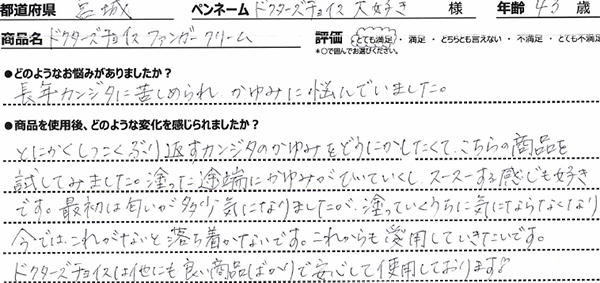 都道府県 宮城 ペンネーム ドクターズチョイス大好き 様 年齢 43 歳
商品名 ドクターズチョイス ファンガークリーム 評価 とても満足 ・ 満足 ・ どちらとも言えない ・ 不満足 ・ とても不満
*○で囲んでお選びください。
●どのようなお悩みがありましたか？
長年カンジタに苦しめられ、かゆみに悩んでいました。
●商品を使用後、どのような変化を感じられましたか？
とにかくしつこくぶり返すカンジタのかゆみをどうにかしたくて、こちらの商品を
試してみました。塗った途端にかゆみがひいていくし、スースーする感じも好き
です。最初は匂いが多少気になりましたが、塗っていくうちに気にならなくなり
今では、これがないと落ち着かないです。これからも愛用していきたいです。
ドクターズチョイスは他にも良い商品ばかりで安心して使用しております♪